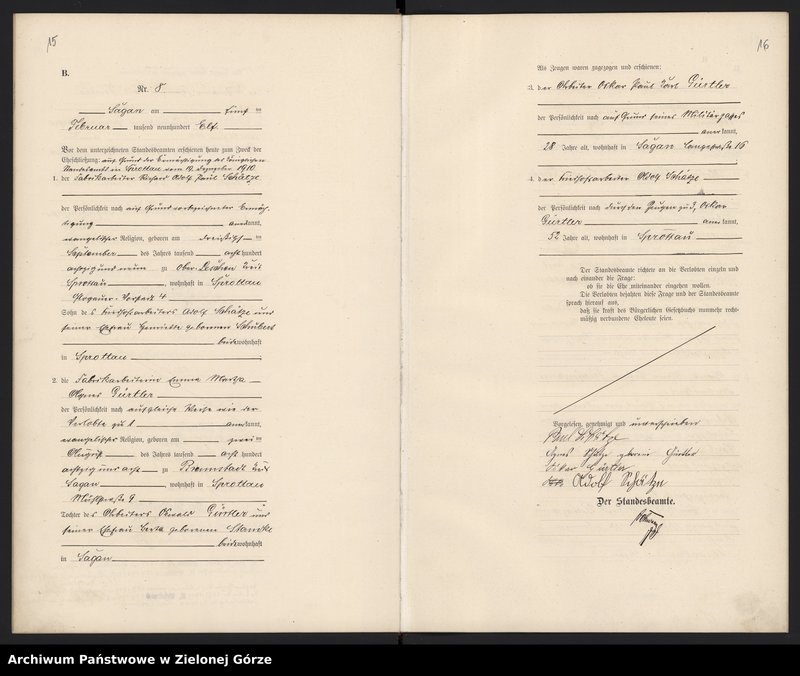 15
B.
Nr. 8
Sagan am fünf ten
Februar tausend neunhundert Elf.
Vor dem unterzeichneten Standesbeamten erschienen heute zum Zweck der
Eheschließung: auf Grund der Ermächtigung des hiesigen
Standesamts in Sprottau vom 19. Dezember 1910
1. der Fabrikarbeiter Richard Adolf Paul Schätze
der Persönlichkeit nach auf Grund vorbezeichneter Ermäch-
tigung anerkannt,
evangelischer Religion, geboren am dreißig ten
September des Jahres tausend acht hundert
achtzig und neun zu Ober-Leschen Kreis
Sprottau, wohnhaft in Sprottau
Glogauer-Vorstadt 4
Sohn des Adolf Schätze und
seiner Ehefrau Henriette geborenen Schubert
beide wohnhaft
in Sprottau
2. die Fabrikarbeiterin Emma Martha
Agnes Gürtler
der Persönlichkeit nach auf gleiche Weise wie der
Verlobte zu 1 anerkannt,
evangelischer Religion, geboren am zwei ten
August des Jahres tausend acht hundert
achtzig und acht zu Brennstadt Kreis
Sagan, wohnhaft in Sprottau
9
Tochter des Arbeiters Oswald Gürtler und
seiner Ehefrau Berta geborenen
beide wohnhaft
in Sagan
16
Als Zeugen waren zugezogen und erschienen:
3. der Arbeiter Oskar Paul Karl Gürtler
der Persönlichkeit nach auf Grund seines Militärpasses
anerkannt,
28 Jahre alt, wohnhaft in Sagan Langestraße 16
4. der Adolf Schätze
der Persönlichkeit nach durch den Zeugen zu 3, Oskar
Gürtler anerkannt,
52 Jahre alt, wohnhaft in Sprottau
Der Standesbeamte richtete an die Verlobten einzeln und
nach einander die Frage:
ob sie die Ehe miteinander eingehen wollen.
Die Verlobten bejahten diese Frage und der Standesbeamte
sprach hierauf aus,
daß sie kraft des Bürgerlichen Gesetzbuchs nunmehr recht-
mäßig verbundene Eheleute seien.
Vorgelesen, genehmigt und unterschrieben
Paul Schätze
Agnes Schätze geborene Gürtler
Oskar Gürtler
Adolf Schätze
Der Standesbeamte.
Archiwum Państwowe w Zielonej Górze